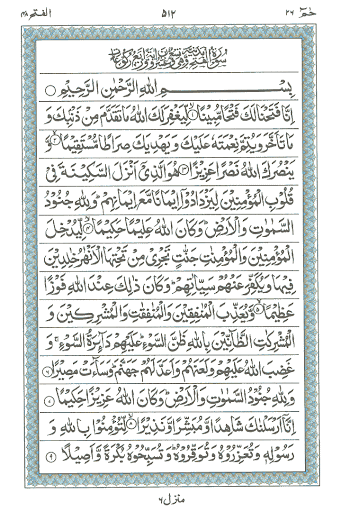 حٰمٓ ۲۶
۵۱۲
الفتح ۴۸
سُوْرَةُ الْفَتْحِ مَدَنِيَّةٌ وَّهِيَ تِسْعٌ وَّعِشْرُوْنَ اٰيَةً وَّاَرْبَعُ رُكُوْعَاتٍ
بِسْمِ اللّٰهِ الرَّحْمٰنِ الرَّحِيْمِ
اِنَّا فَتَحْنَا لَكَ فَتْحًا مُّبِيْنًا ۱ لِّيَغْفِرَ لَكَ اللّٰهُ مَا تَقَدَّمَ مِنْ ذَنْۢبِكَ وَ
مَا تَاَخَّرَ وَيُتِمَّ نِعْمَتَهٗ عَلَيْكَ وَيَهْدِيَكَ صِرَاطًا مُّسْتَقِيْمًا ۲ وَّ
يَنْصُرَكَ اللّٰهُ نَصْرًا عَزِيْزًا ۳ هُوَ الَّذِيْٓ اَنْزَلَ السَّكِيْنَةَ فِيْ
قُلُوْبِ الْمُؤْمِنِيْنَ لِيَزْدَادُوْٓا اِيْمَانًا مَّعَ اِيْمَانِهِمْ ؕ وَلِلّٰهِ جُنُوْدُ
السَّمٰوٰتِ وَالْاَرْضِ ؕ وَكَانَ اللّٰهُ عَلِيْمًا حَكِيْمًا ۴ لِّيُدْخِلَ
الْمُؤْمِنِيْنَ وَالْمُؤْمِنٰتِ جَنّٰتٍ تَجْرِيْ مِنْ تَحْتِهَا الْاَنْهٰرُ خٰلِدِيْنَ
فِيْهَا وَيُكَفِّرَ عَنْهُمْ سَيِّاٰتِهِمْ ؕ وَكَانَ ذٰلِكَ عِنْدَ اللّٰهِ فَوْزًا
عَظِيْمًا ۵ وَّيُعَذِّبَ الْمُنٰفِقِيْنَ وَالْمُنٰفِقٰتِ وَالْمُشْرِكِيْنَ وَ
الْمُشْرِكٰتِ الظَّآنِّيْنَ بِاللّٰهِ ظَنَّ السَّوْءِ ؕ عَلَيْهِمْ دَآئِرَةُ السَّوْءِ ۚ وَ
غَضِبَ اللّٰهُ عَلَيْهِمْ وَلَعَنَهُمْ وَاَعَدَّ لَهُمْ جَهَنَّمَ ؕ وَسَآءَتْ مَصِيْرًا ۶
وَلِلّٰهِ جُنُوْدُ السَّمٰوٰتِ وَالْاَرْضِ ؕ وَكَانَ اللّٰهُ عَزِيْزًا حَكِيْمًا ۷
اِنَّآ اَرْسَلْنٰكَ شَاهِدًا وَّمُبَشِّرًا وَّنَذِيْرًا ۸ لِّتُؤْمِنُوْا بِاللّٰهِ وَ
رَسُوْلِهٖ وَتُعَزِّرُوْهُ وَتُوَقِّرُوْهُ ؕ وَتُسَبِّحُوْهُ بُكْرَةً وَّاَصِيْلًا ۹
منزل ۶